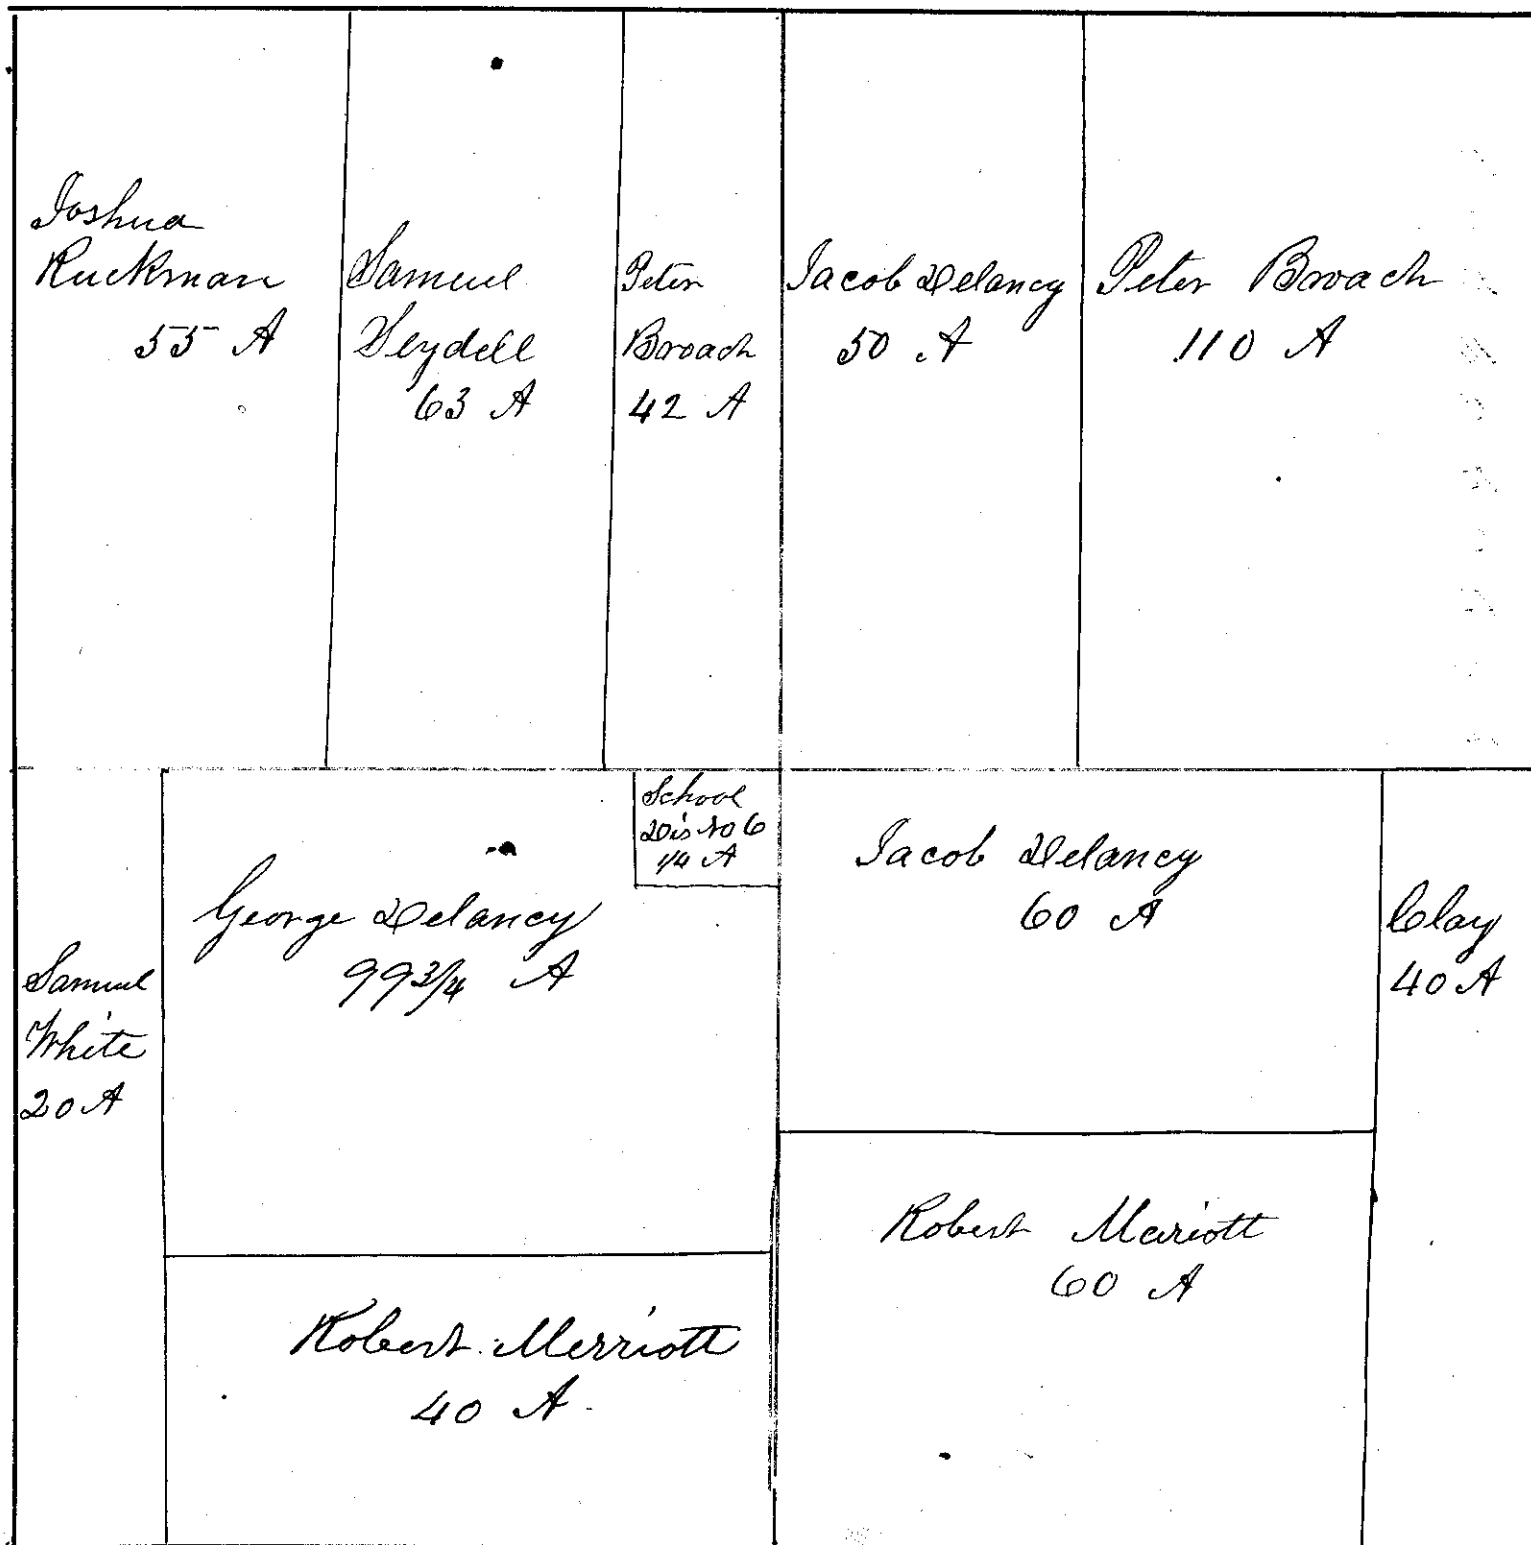 Joshua
Ruckman
55 A
Samuel
Leydell
63 A
Peter
Broach
42 A
Jacob Delancy
50 A
Peter Broach
110 A
School
Dis No 6
1/4 A
George Delancy
99 3/4 A
Samuel
White
20 A
Jacob Delancy
60 A
Clay
40 A
Robert Mariott
60 A
Robert Merriott
40 A